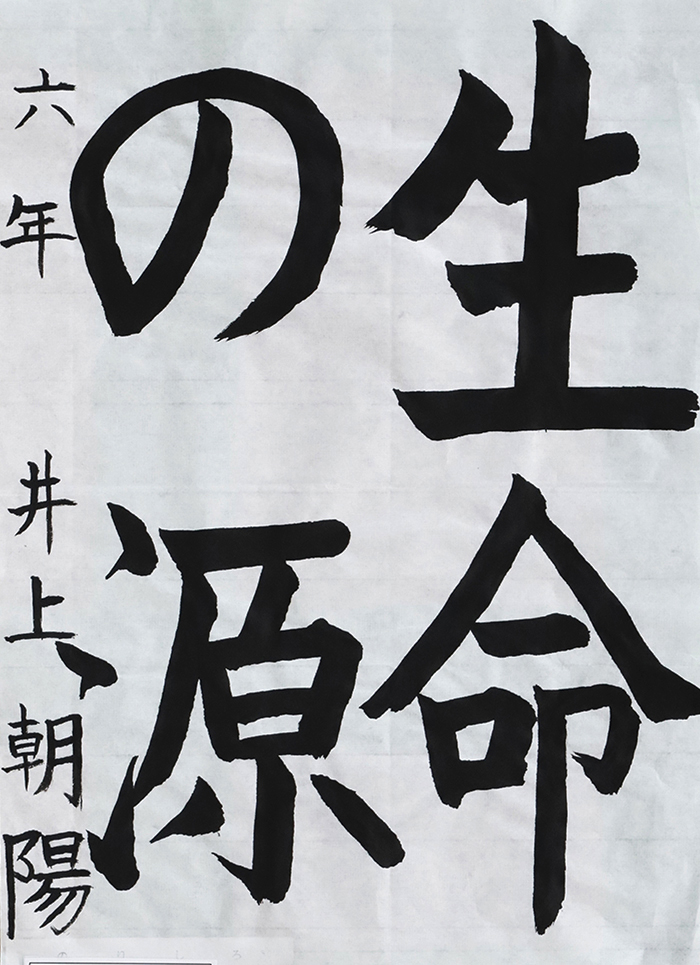 生命
の源
六年 井上朝陽